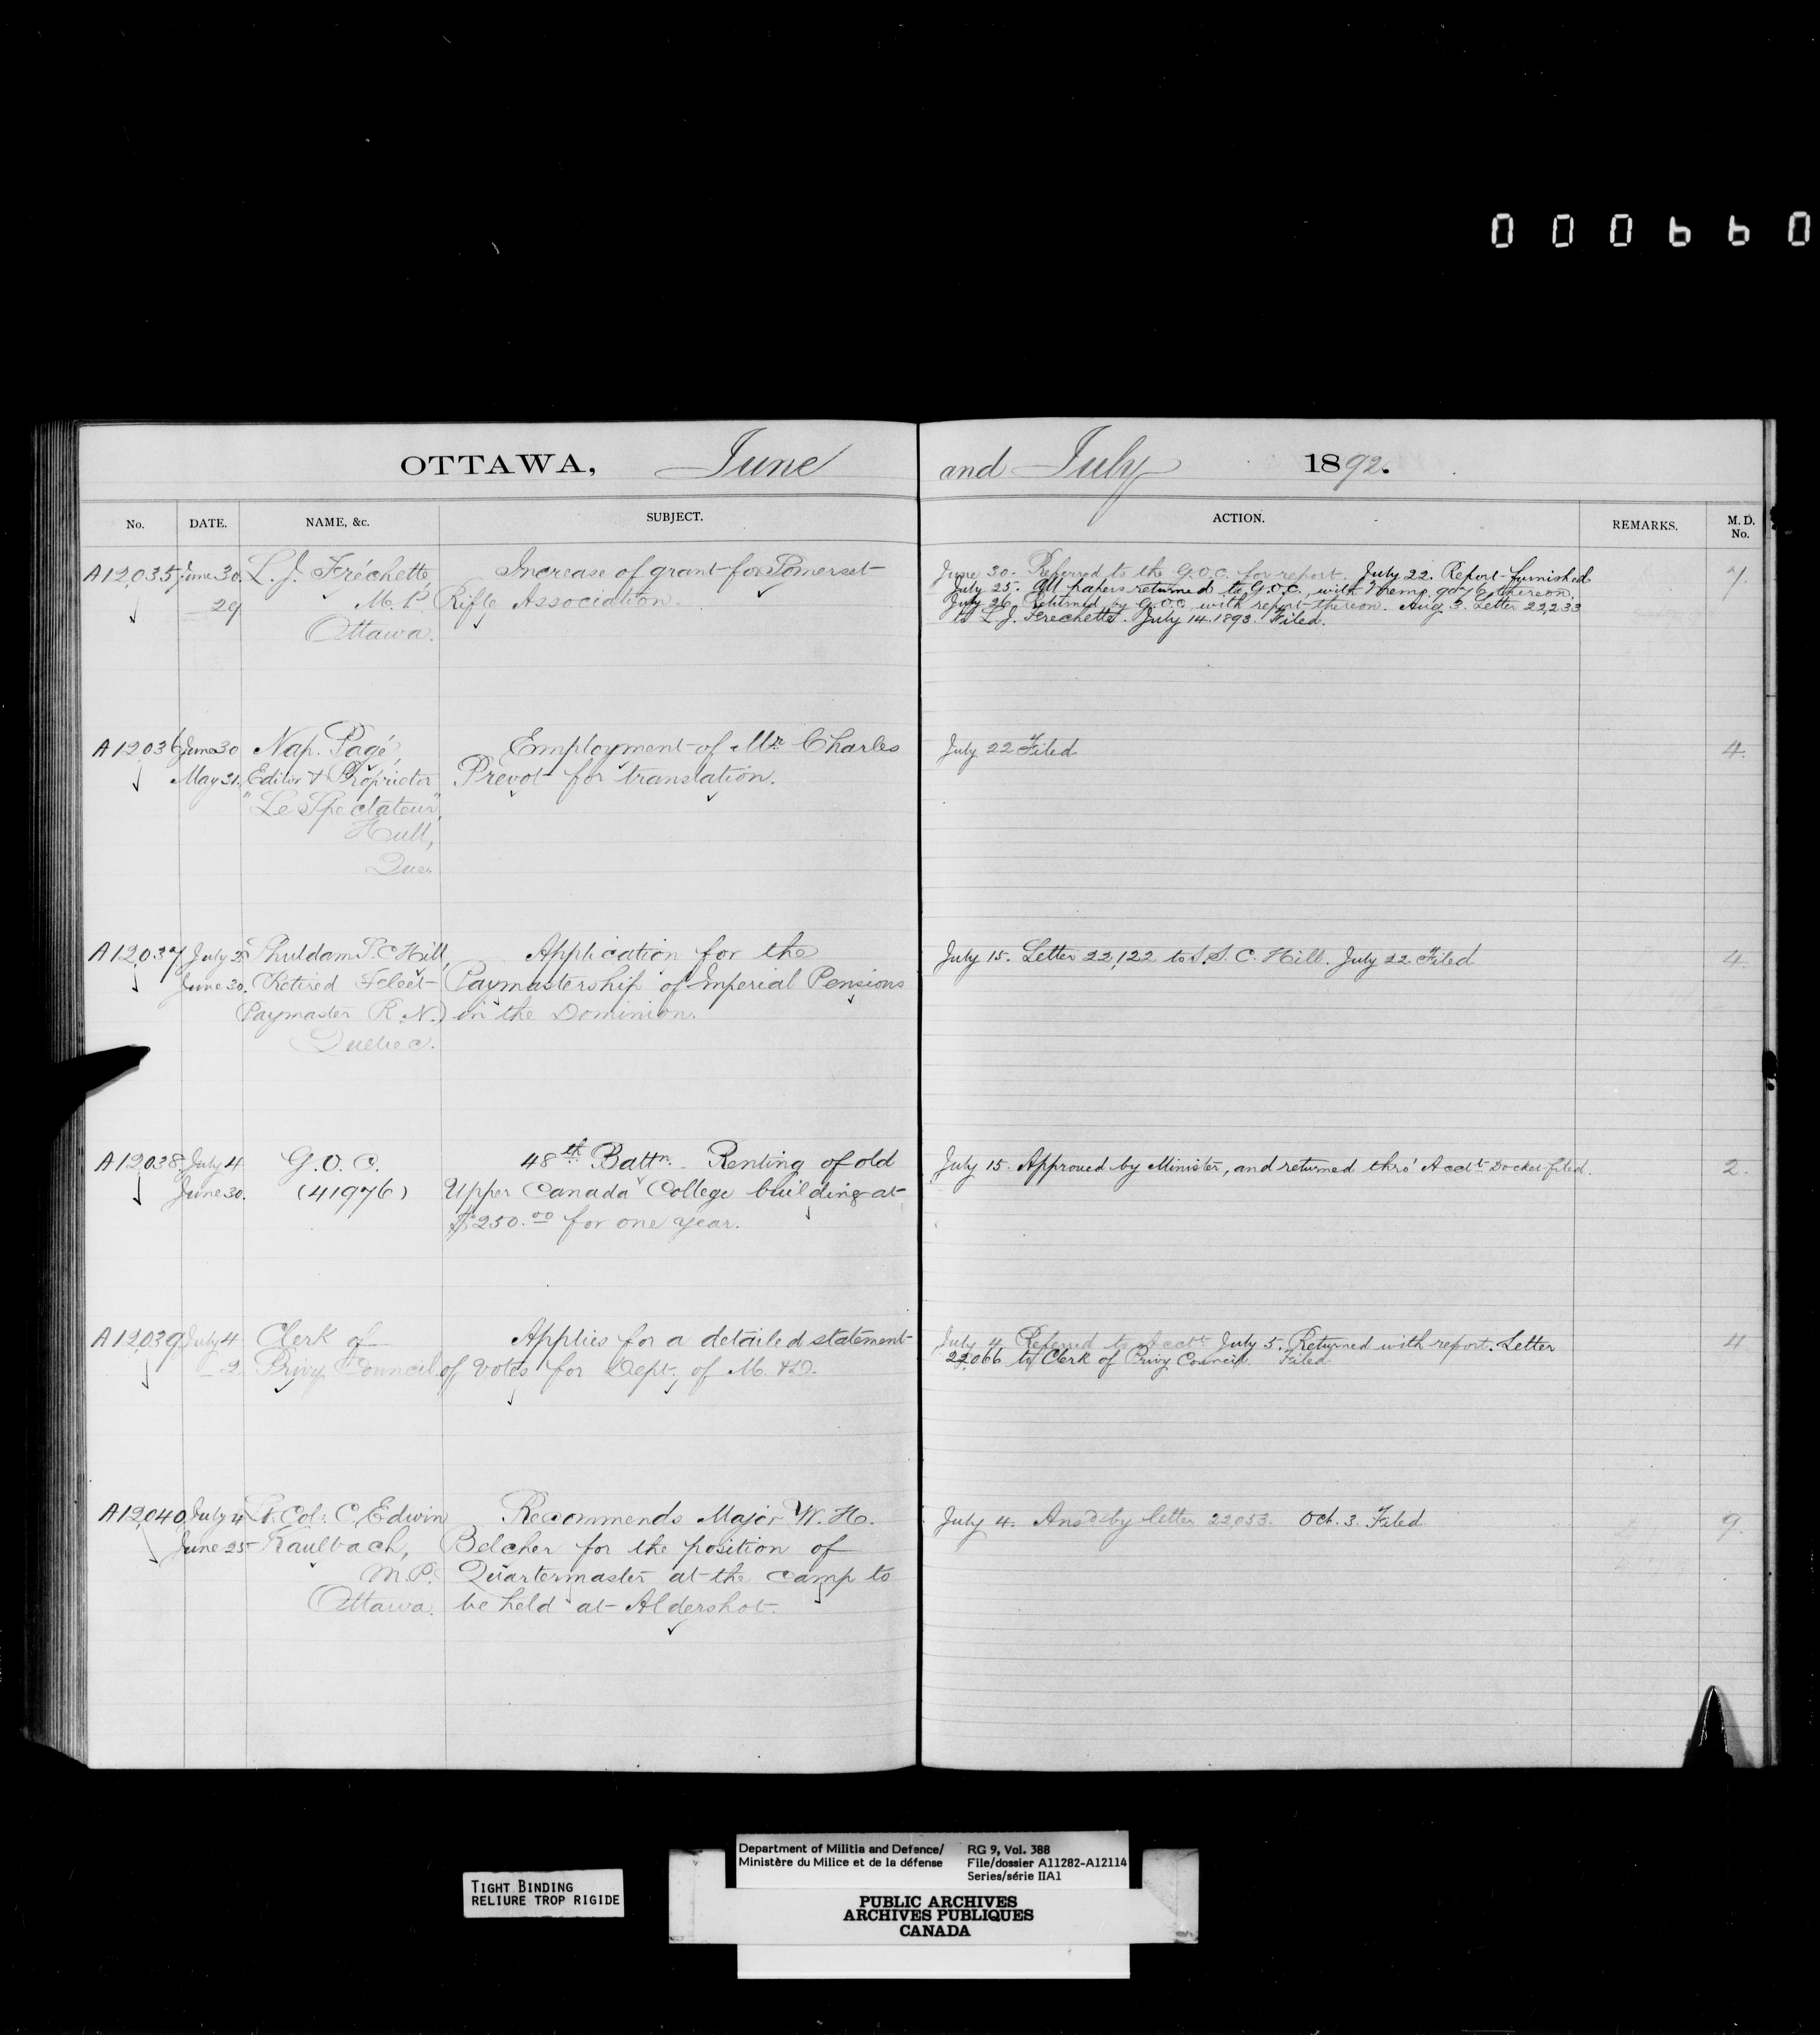 000660
OTTAWA, June and July 1892.
No. DATE. NAME, &c. SUBJECT. ACTION. REMARKS. M. D. No.
A12,035 June 30. L. J. Fréchette, Increase of grant for Somerset
29 M. P. Rifle Association.
Ottawa.
June 30. Referred to the G.O.C. for report. July 22. Report furnished
July 25. All papers returned to G.O.C., with Memo. 9076 thereon.
July 26. Returned by G.O.C. with report thereon. Aug. 3. Letter 22,233
to L. J. Frechette. July 14. 1893. Filed.
7.
A12036 June 30 Nap. Pagé, Employment of Mr. Charles
May 31. Editor & Proprietor Prevot for translation.
"Le Spectateur",
Hull,
Que.
July 22 Filed
4.
A12,037 July 2 Shuldam S. C. Hill, Application for the
June 30. (Retired Fleet- Paymastership of Imperial Pensions
Paymaster R. N.) in the Dominion.
Quebec.
July 15. Letter 22,122 to S. S. C. Hill. July 22 Filed
4.
A12,038 July 4 G. O. C. 48th Battn. Renting of old
June 30. (41976) Upper Canada College building at
$250.00 for one year.
July 15. Approved by Minister, and returned thro' Acct. Docket filed.
2.
A12,039 July 4 Clerk of Applies for a detailed statement
— 2. Privy Council of votes for Dept. of M. & D.
July 4. Referred to Acctt. July 5. Returned with report. Letter
22,066 to Clerk of Privy Council. Filed.
4
A12,040 July 4 Lt. Col. C. Edwin Recommends Major W. H.
June 25 Kaulbach, Belcher for the position of
M.P. Quartermaster at the camp to
Ottawa. be held at Aldershot.
July 4. Ansd by letter 22,053. Oct. 3. Filed
9.
TIGHT BINDING
RELIURE TROP RIGIDE
Department of Militia and Defence/ RG 9, Vol. 388
Ministère du Milice et de la défense File/dossier A11282-A12114
Series/série IIA1
PUBLIC ARCHIVES
ARCHIVES PUBLIQUES
CANADA